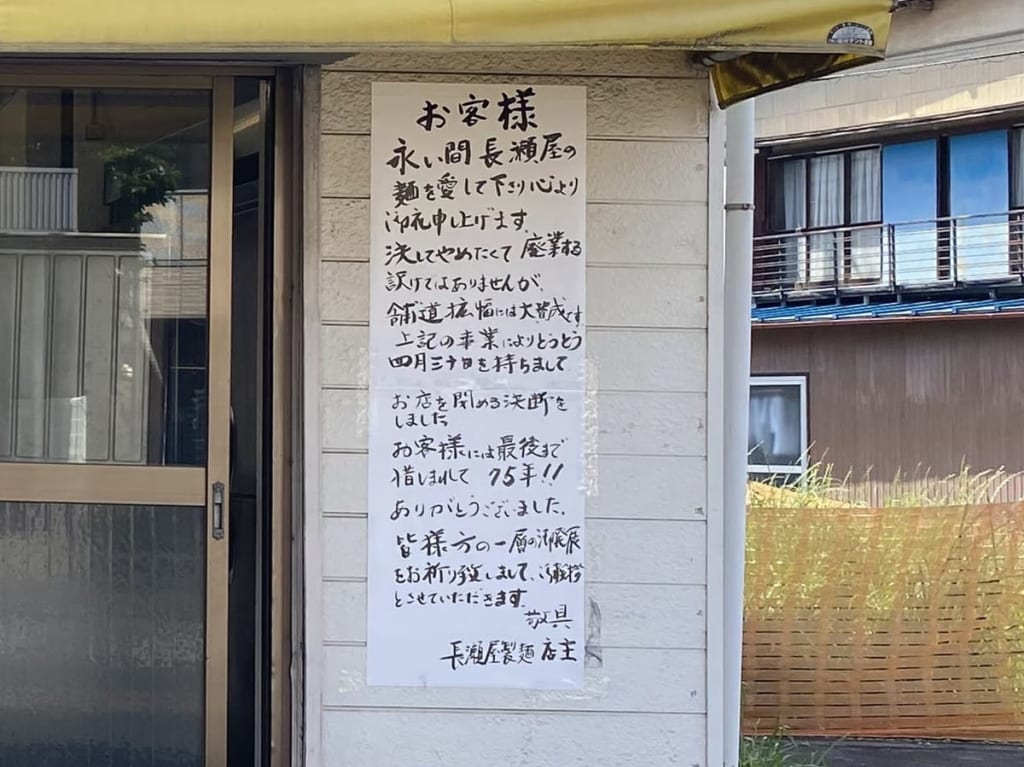 お客様
永い間長瀬屋の
麺を愛して下さり心より
御礼申し上げます。
決してやめたくて廃業する
訳けではありませんが、
舗道拡幅には大賛成です
上記の事業によりとうとう
四月三十日を持ちまして
お店を閉める決断を
しました
お客様には最後まで
惜しまれて75年!!
ありがとうございました。
皆様方の一層の御発展
をお祈り致しまして、御挨拶
とさせていただきます。
敬具
長瀬屋製麺店主